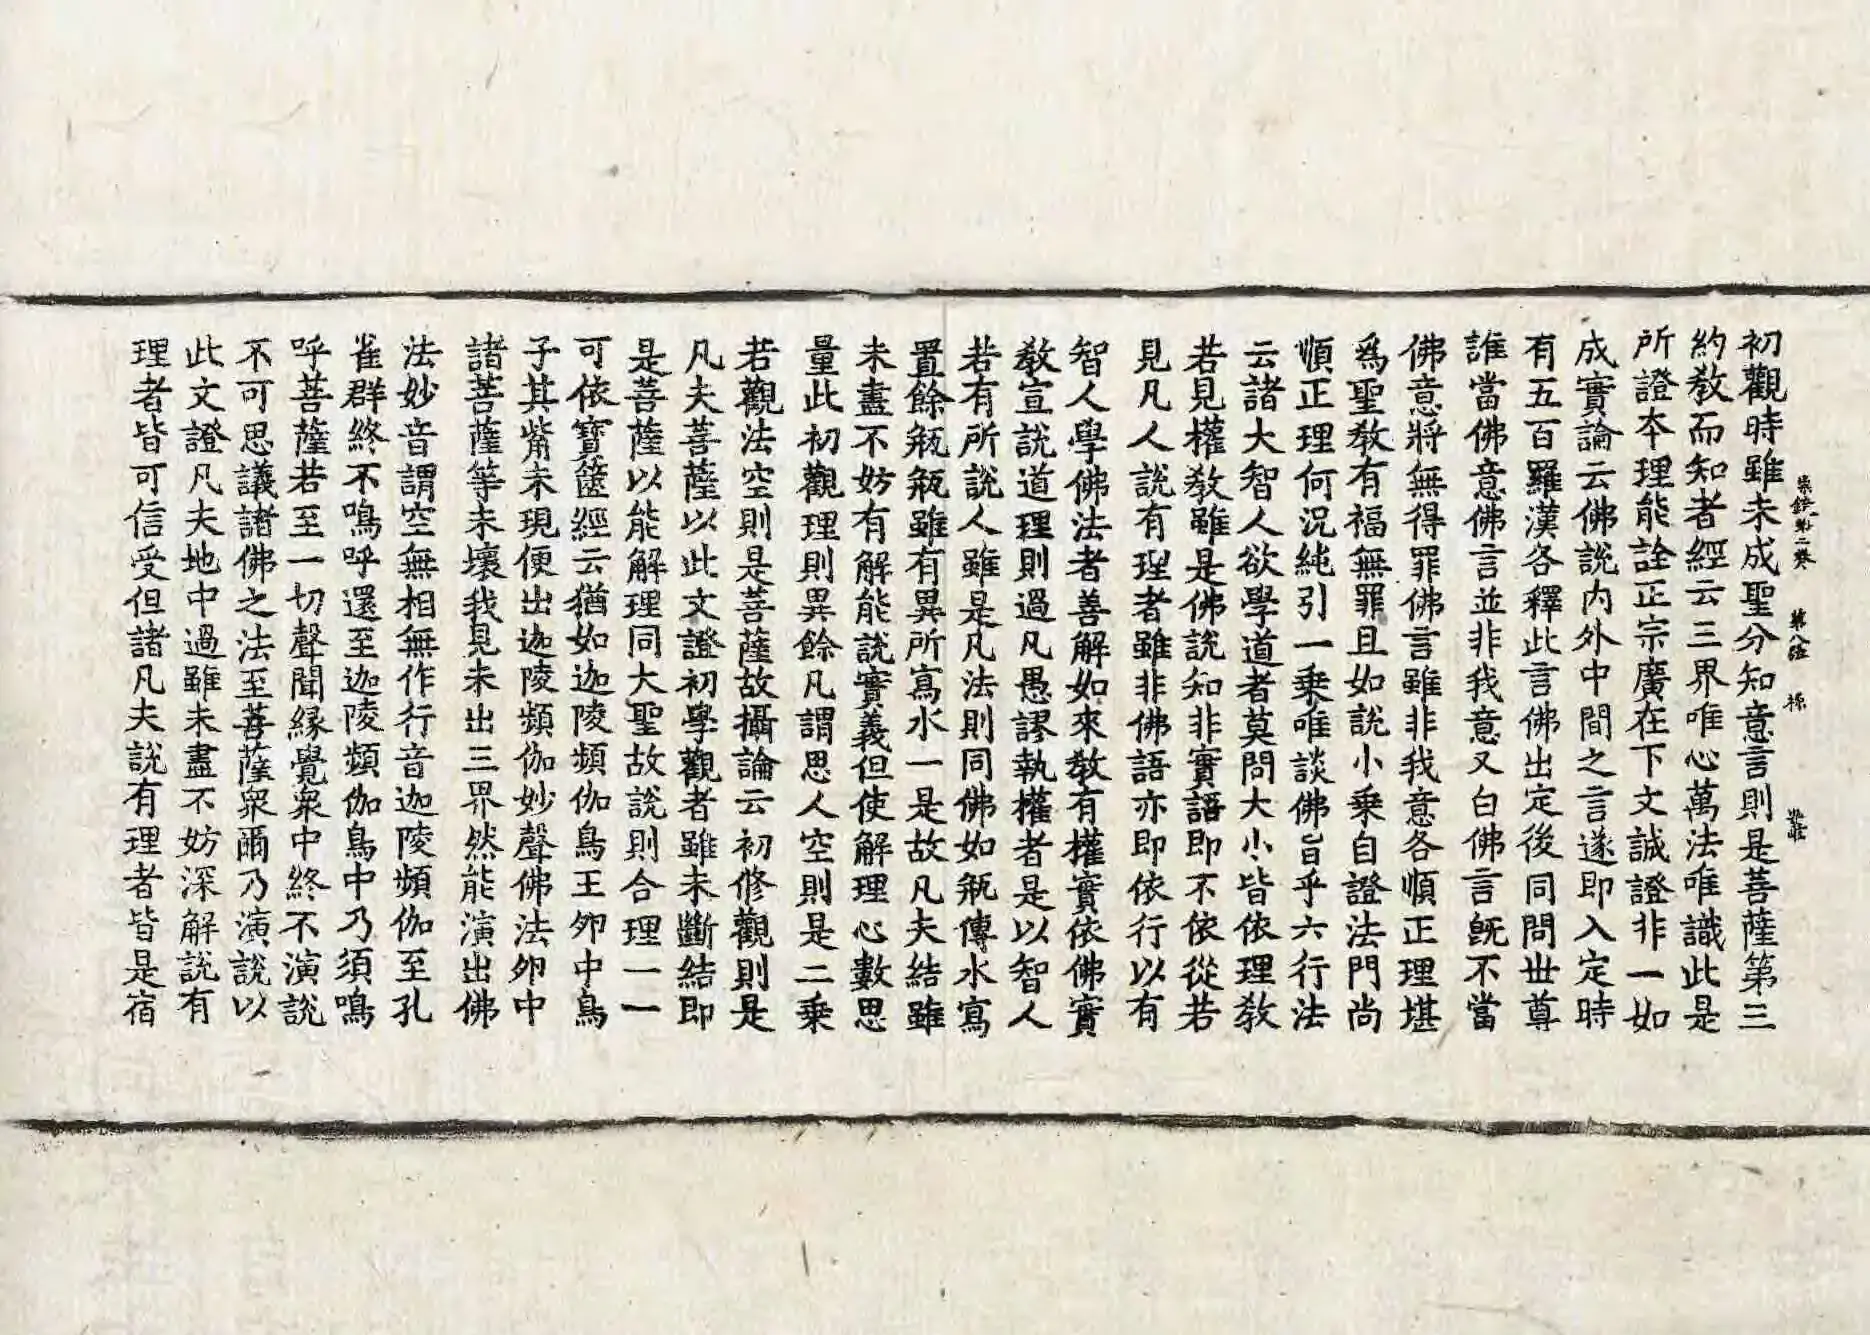 宗鏡第二卷 第八張 㯹
初觀時雖未成聖分知意言則是菩薩第三
約教而知者經云三界唯心萬法唯識此是
所證本理能詮正宗廣在下文誠證非一如
成實論云佛說內外中間之言遂即入定時
有五百羅漢各釋此言佛出定後同問世尊
誰當佛意佛言並非我意又白佛言既不當
佛意將無得罪佛言雖非我意各順正理堪
爲聖教有福無罪且如說小乘自證法門尚
順正理何況純引一乘唯談佛旨乎六行法
云諸大智人欲學道者莫問大小皆依理教
若見權教雖是佛說知非實語即不依從若
見凡人說有理者雖非佛語亦即依行以有
智人學佛法者善解如來教有權實依佛實
教宣說道理則過凡愚謬執權者是以智人
若有所說人雖是凡法則同佛如瓶傳水寫
置餘瓶瓶雖有異所寫水一是故凡夫結雖
未盡不妨有解能說實義但使解理心數思
量此初觀理則異餘凡謂思人空則是二乘
若觀法空則是菩薩故攝論云初修觀則是
凡夫菩薩以此文證初學觀者雖未斷結即
是菩薩以能解理同大聖故說則合理一一
可依寶篋經云猶如迦陵頻伽鳥王卵中鳥
子其觜未現便出迦陵頻伽妙聲佛法卵中
諸菩薩等未壞我見未出三界然能演出佛
法妙音謂空無相無作行音迦陵頻伽至孔
雀群終不鳴呼還至迦陵頻伽鳥中乃須鳴
呼菩薩若至一切聲聞緣覺衆中終不演說
不可思議諸佛之法至菩薩衆爾乃演說以
此文證凡夫地中過雖未盡不妨深解說有
理者皆可信受但諸凡夫說有理者皆是宿